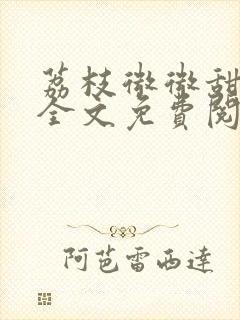 荔枝微微甜
全文免費閱
阿芭雷西達